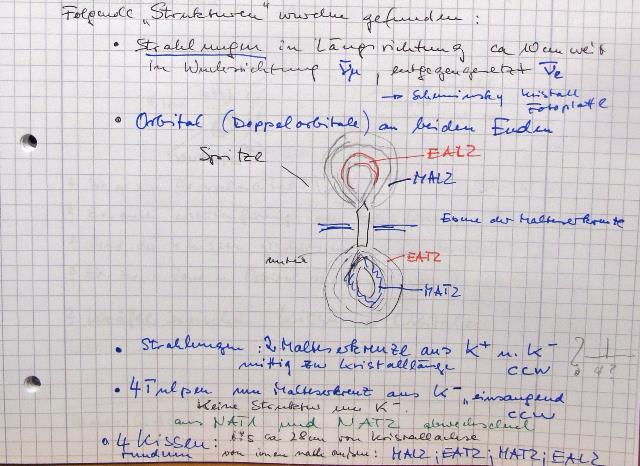 Folgende „Strukturen" wurden gefunden:
• Strahlungen in Längsrichtung ca 10cm weit
in Wuchsrichtung ν̄μ, entgegengesetzt ν̄e
→ Scheminsky Kristall
Fotoplatte
• Orbital (Doppelorbitale) an beiden Enden
Spitze
EALZ
MALZ
Ebene der Malteserkreuze
unten
EATZ
MATZ
• Strahlungen: 2 Malteserkreuze aus K⁺ u. K⁻
mittig zu Kristalllänge CCW
• 4 Tulpen um Malteserkreuz aus K⁻ „einsaugend
Keine Struktur um K⁻. CCW
aus NAT1 und NATZ abwechselnd
• 4 Kissen: bis ca 28cm von Kristallachse
rundum von innen nach außen: MALZ; EATZ; MATZ; EALZ